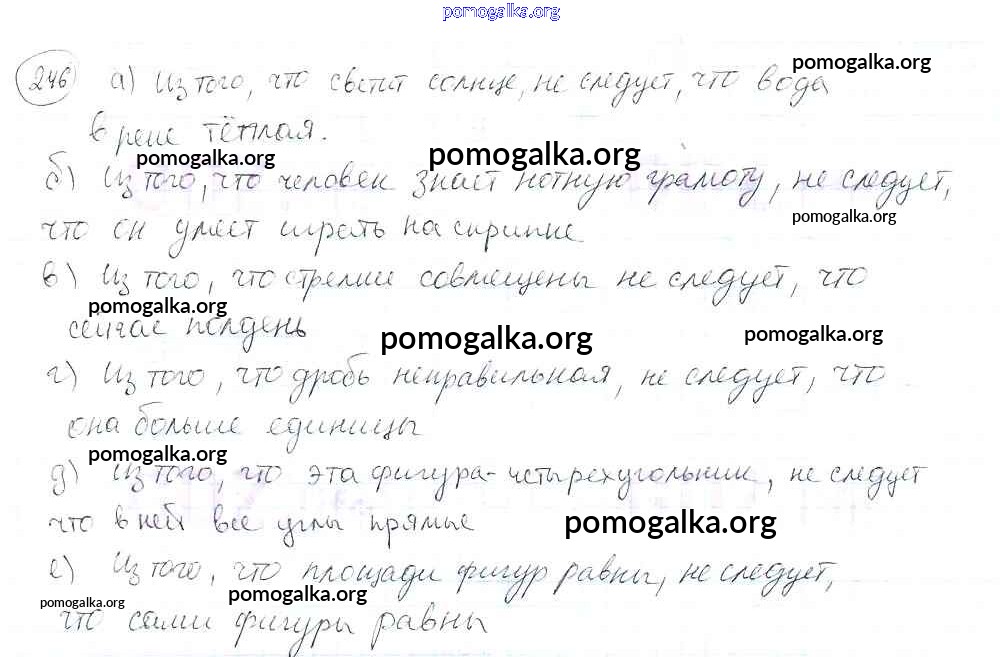 pomogalka.org
246 а) Из того, что светит солнце, не следует, что вода
pomogalka.org
в реке тёплая.
pomogalka.org
pomogalka.org
б) Из того, что человек знает нотную грамоту, не следует,
pomogalka.org
что он умеет играть на скрипке
в) Из того, что стрелки совмещены не следует, что
pomogalka.org
сейчас полдень
pomogalka.org
pomogalka.org
г) Из того, что дробь неправильная, не следует, что
она больше единицы
pomogalka.org
д) Из того, что эта фигура-четырехугольник, не следует
что в ней все углы прямые
pomogalka.org
е) Из того, что площади фигур равны, не следует,
pomogalka.org
pomogalka.org
что сами фигуры равны